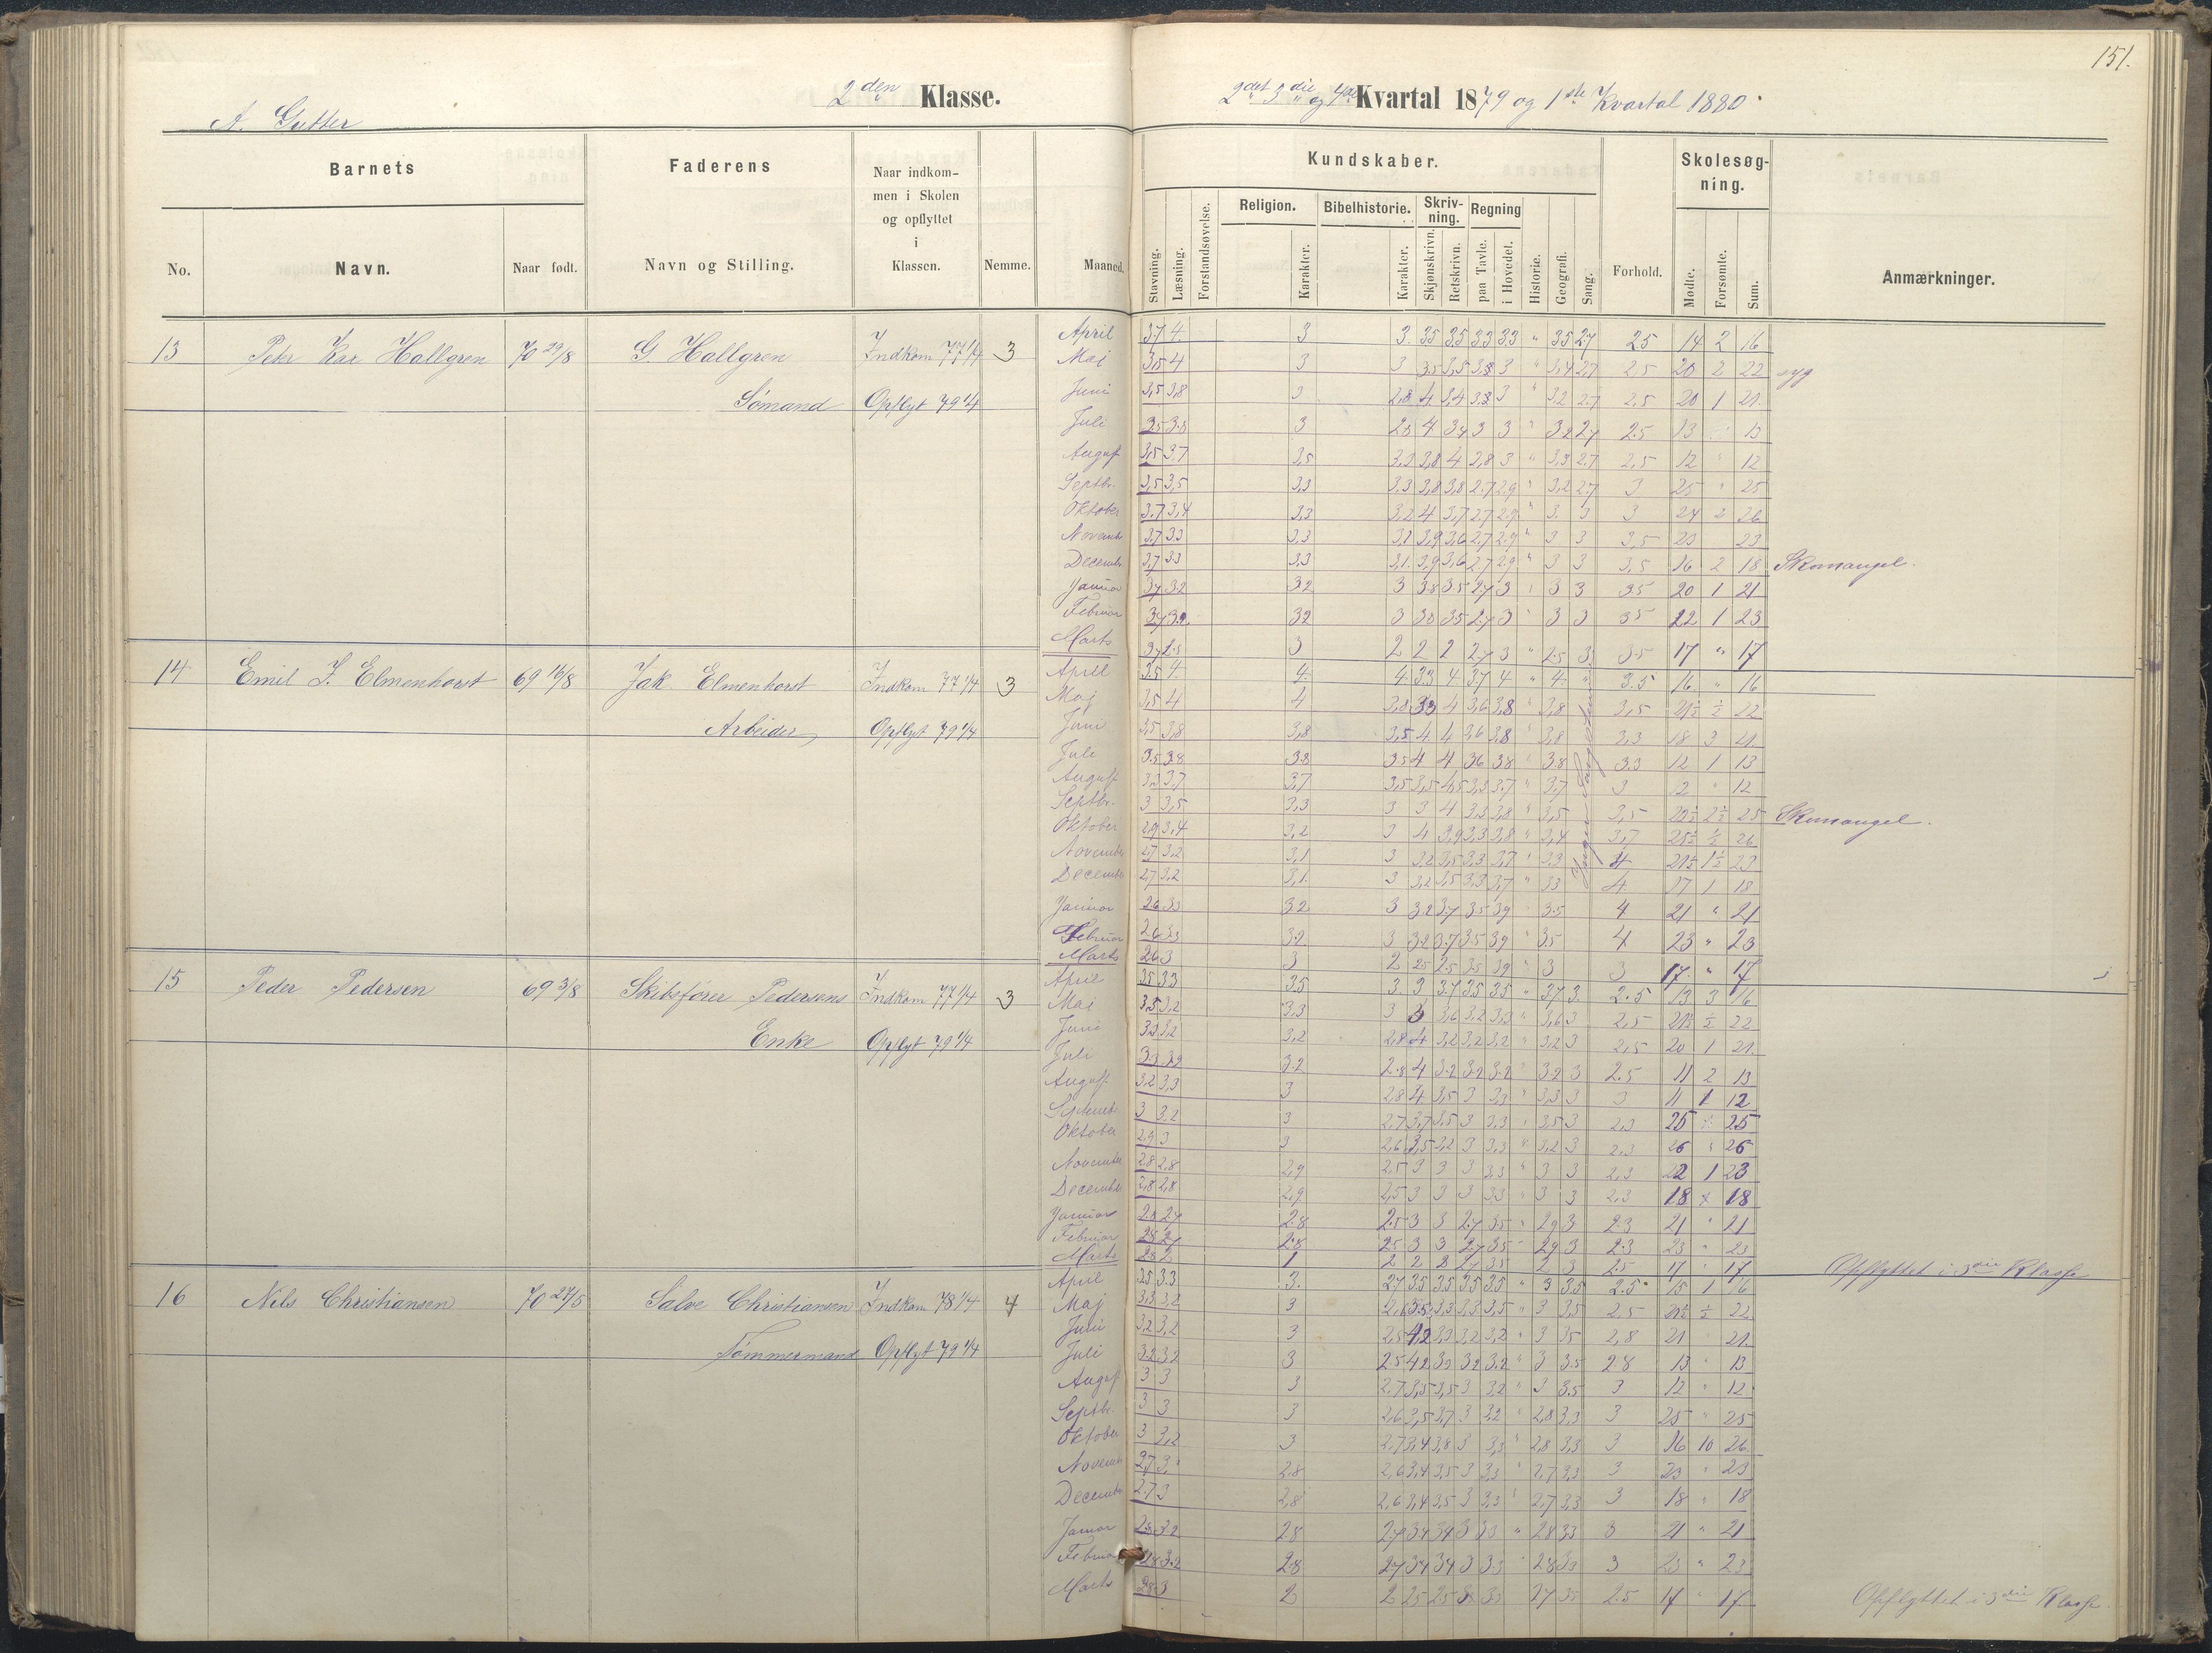 151.
A. Gutter
2den Klasse.
2det 3die og 4de Kvartal 1879 og 1ste Kvartal 1880.
Barnets
Faderens
Naar indkom-
men i Skolen
og opflyttet
i
Klassen.
Nemme.
Maaned.
No.
Navn.
Naar født.
Navn og Stilling.
Kundskaber.
Stavning.
Læsning.
Forstandsøvelse.
Religion.
Karakter.
Bibelhistorie.
Karakter.
Skriv-
ning.
Skjønskrivn.
Retskrivn.
Regning
paa Tavle.
i Hovedet.
Historie.
Geografi.
Sang.
Forhold.
Skolesøg-
ning.
Mødte.
Forsømte.
Sum.
Anmærkninger.
13 Peter Kar Hallgren 70 29/8 G. Hallgren Indkom 77 1/4 3
Sømand Opflyt 79 1/4
April 3.7 4. 3 3. 3.5 3.5 3.3 3.3 " 3.5 2.7 2.5 14 2 16
Maj 3,5 4 3 3 3.5 3,5 3 " 3,4 2,7 2.5 20 2 22 syg
Juni 3,5 3,8 3 2,8 4 3,4 3.3 3 " 3,2 2.7 2,5 20 1 21.
Juli 3.5 3.8 3 2.8 4 3.4 3 3 " 3.2 2.7 2.5 13 13
August 3,5 3.7 3,5 3,3 3,8 4 2,8 3 " 3,3 2.7 2,5 12 " 12
Septbr. 3,5 3,5 3,3 3.3 3,8 3,8 2.7 2.9 " 3,2 2.7 3 25 " 25
Oktober 3.7 3,4 3,3 3,2 4 3,7 2.7 2.9 " 3. 3 3 24 2 26
Novemb. 3.7 3.3 3,3 3,1 3,9 3,6 2.7 2.9 " 3 3 3,5 23 23
Decemb. 3,7 3.3 3,3 3,1. 3,9 3,6 2.7 2.9 " 3 3 3,5 16 2 18 Skomangel.
Januar 3.7 3.2 3.2 3 3.8 3.5 2.7 3 " 3 3 3.5 20 1 21
Februar 3.7 3.2 3.2 3 3.8 3.5 2.7 3 " 3 3 3.5 22 1 23
Marts 3 2 2 2 2.7 3 " 2.5 3. 3.5 17 " 17
14 Emil J. Elmenhorst 69 16/8 Jak. Elmenhorst Indkom 77 1/4 3
Arbeider Opflyt 79 1/4
April 3.5 4. 4. 4. 3.3 4. 3.7 4 " 4. " 3.5 16. " 16
Maj 3,5 4 4 3,8 3.3 4 3,6 3,8 " 3,8 3,5 21½ ½ 22
Juni 3,5 3,8 3,8 3,5 4 4 3,6 3,8 " 3,8 3,3 18 3 21.
Juli 3.5 3.8 3.8 3.5 4 4 3.6 3.8 " 3.8 3.3 12 1 13
August 3.3 3,7 3,7 3,5 3,5 3,3 3.7 " 3,7 3 " 12
Septbr. 3 3,5 3,3 3 3 4 3,3 3,8 " 3,5 3,5 22½ 2½ 25 Skomangel.
Oktober 2.9 3,4 3,2 3 4 3,9 3,3 3,8 " 3,4 3,7 25½ ½ 26
November 2.7 3,2 3,1 3 3.2 3,5 3,3 3,7 " 3.3 4 21½ 1½ 23
December 2,7 3,2 3,1. 3 3,2 3,5 3,3 3,7 " 3.3 4 17 1 18
Januar 2.6 3.3 3.2 3 3.2 3.7 3.5 3.9 " 3.5 4 21 " 21
Februar 2.6 3.3 3.2 3 3.2 3.7 3.5 3.9 " 3.5 4 23 " 23
Marts 2.6 3 3 2 2.5 2.5 3.5 3.9 " 3 3 17. " 17
15 Peder Pedersen 69 3/8 Skibsfører Pedersens Indkom 77 1/4 3
Enke Opflyt 79 1/4
April 3.5 3.3 3.5 3. 3 3.7 3.5 3.5 " 3.7 3. 2.5 13 3 16
Mai 3.5 3,2 3.3 3 3 3,6 3,2 3,3 " 3,6 3 2,5 21½ ½ 22
Juni 3.3 3,2 3,2 2,8 4 3,2 3,2 3,2 " 3,2 3 2,5 20 1 21.
Juli 3.3 3.2 3.2 2.8 4 3.2 3.2 3.2 " 3.2 3 2.5 11 2 13
August 3,2 3,3 3 2.8 4 3,5 3 3.3 " 3,3 3 3 11 1 12
Septemb. 3 3,2 3 2.7 3,7 3.5 3 3.3 " 3.5 3 2,3 25 25
Oktober 2.9 3 3 2,6 3,5 3,2 3 3,3 " 3,2 3 2.3 26 " 26
November 2.8 2,8 2,9 2.5 3 3 3 3.3 " 3 3 2,3 22 1 23
December 2.8 2,8 2,9 2,5 3 3 3 3.3 " 3 3 2,3 18 18
Januar 2.8 2.7 2.8 2.5 3 3 2.7 3.5 " 2.9 3 2.3 21 " 21
Februar 2.8 2.7 2.8 2.5 3 3 2.7 3.5 " 2.9 3 2.3 23 " 23
Marts 2.8 2 1 2 2 2 2.7 3.5 " 2 3 2.5 17 " 17 Opflyttet i 3die Klasse
16 Nils Christiansen 70 27/5 Salve Christiansen Indkom 78 1/4 4
Tømmermand Opflyt 79 1/4
April 3.5 3.3 3. 2.7 3.5 3.5 3.5 3.5 " 3 3.5 2.5 15 1 16
Maj 3,3 3,2 3 2,6 3.5 3,3 3,3 3,5 " 3 3,5 2.5 21½ ½ 22
Juni 3.2 3,2 3 2,5 4.2 3,3 3,2 3,2 " 3 3.5 2,8 21 " 21.
Juli 3.2 3.2 3 2.5 4.2 3.3 3.2 3.2 " 3 3.5 2.8 13 " 13
August 3 3 3 2.7 3,5 3,5 3 3.2 " 3 3.5 3 12 " 12
Septbr. 3 3 3 2,6 3,5 3,7 3 3.2 " 2,8 3,3 3 25 " 25
Oktober 3 3,2 3 2,7 3,4 3,8 3 3,3 " 2,8 3,3 3 16 10 26
Novemb. 2.7 3. 2.8 2,6 3,4 3,5 3 3,3 " 2,7 3,3 3 23 " 23
Decemb. 2.7 3 2,8 2,6 3,4 3,5 3 3,3 " 2,7 3,3 3 18 " 18
Januar 2.8 3.2 2.8 2.7 3.4 3.4 3 3.3 " 2.8 3.3 3 21 " 21
Februar 2.8 3.2 2.8 2.7 3.4 3.4 3 3.3 " 2.8 3.3 3 23 " 23
Marts 2.8 3 2 2 2.5 2.5 3 3.3 2.7 3.5 2.5 17 " 17 Opflyttet i 3die Klasse